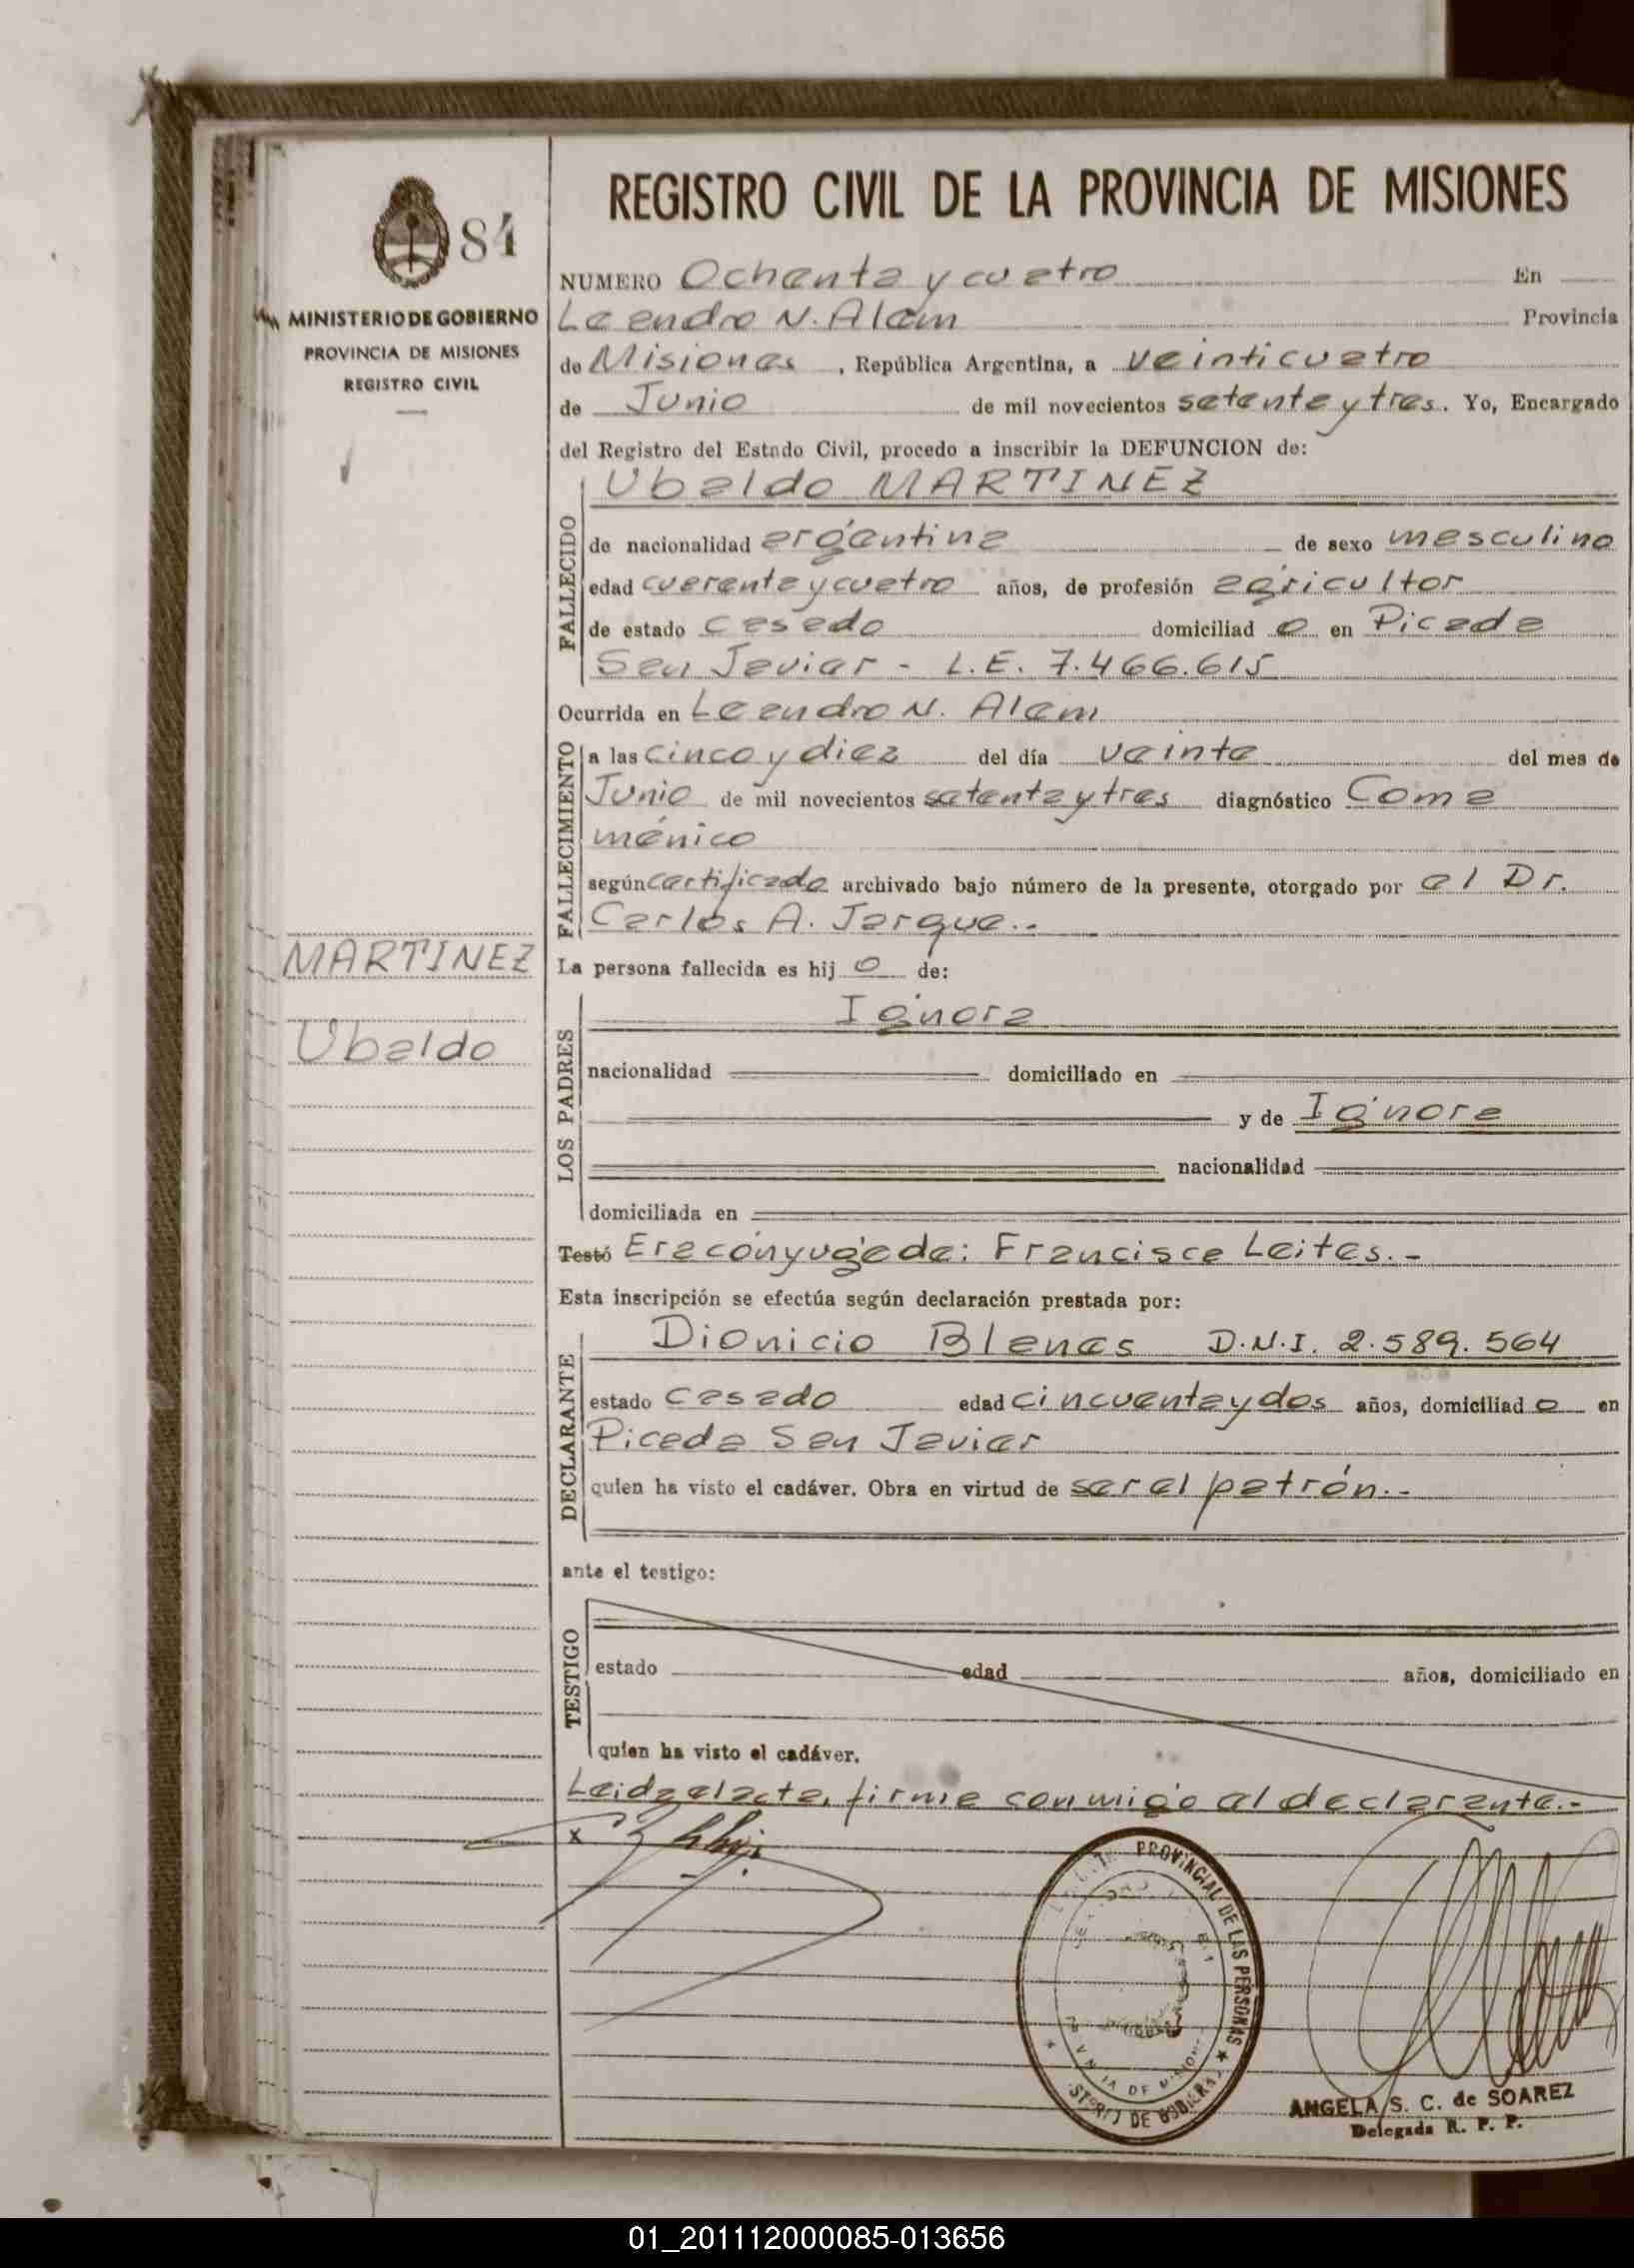 84
MINISTERIO DE GOBIERNO
PROVINCIA DE MISIONES
REGISTRO CIVIL
MARTINEZ
Ubaldo
REGISTRO CIVIL DE LA PROVINCIA DE MISIONES
NUMERO Ochenta y cuatro En
Leandro N. Alem Provincia
de Misiones, República Argentina, a veinticuatro
de Junio de mil novecientos setenta y tres. Yo, Encargado
del Registro del Estado Civil, procedo a inscribir la DEFUNCION de:
FALLECIDO
Ubaldo MARTINEZ
de nacionalidad argentina de sexo masculino
edad cuarenta y cuatro años, de profesión agricultor
de estado casado domiciliad o en Picada
San Javier - L.E. 7.466.615
Ocurrida en Leandro N. Alem
FALLECIMIENTO
a las cinco y diez del día veinte del mes de
Junio de mil novecientos setenta y tres diagnóstico Coma
ménico
según certificado archivado bajo número de la presente, otorgado por el Dr.
Carlos A. Jarque.-
La persona fallecida es hij o de:
LOS PADRES
Ignora
nacionalidad domiciliado en
y de Ignora
nacionalidad
domiciliada en
Testó Era cónyuge de: Francisca Leites.-
Esta inscripción se efectúa según declaración prestada por:
DECLARANTE
Dionicio Blenas D.N.I. 2.589.564
estado casado edad cincuenta y dos años, domiciliad o en
Picada San Javier
quien ha visto el cadáver. Obra en virtud de ser el patrón.-
ante el testigo:
TESTIGO
estado edad años, domiciliado en
quien ha visto el cadáver.
Leida el acta, firma conmigo el declarante.-
x
PROVINCIAL DE LAS PERSONAS
DE
ANGELA S. C. de SOAREZ
Delegada R. P. P.
01_201112000085-013656